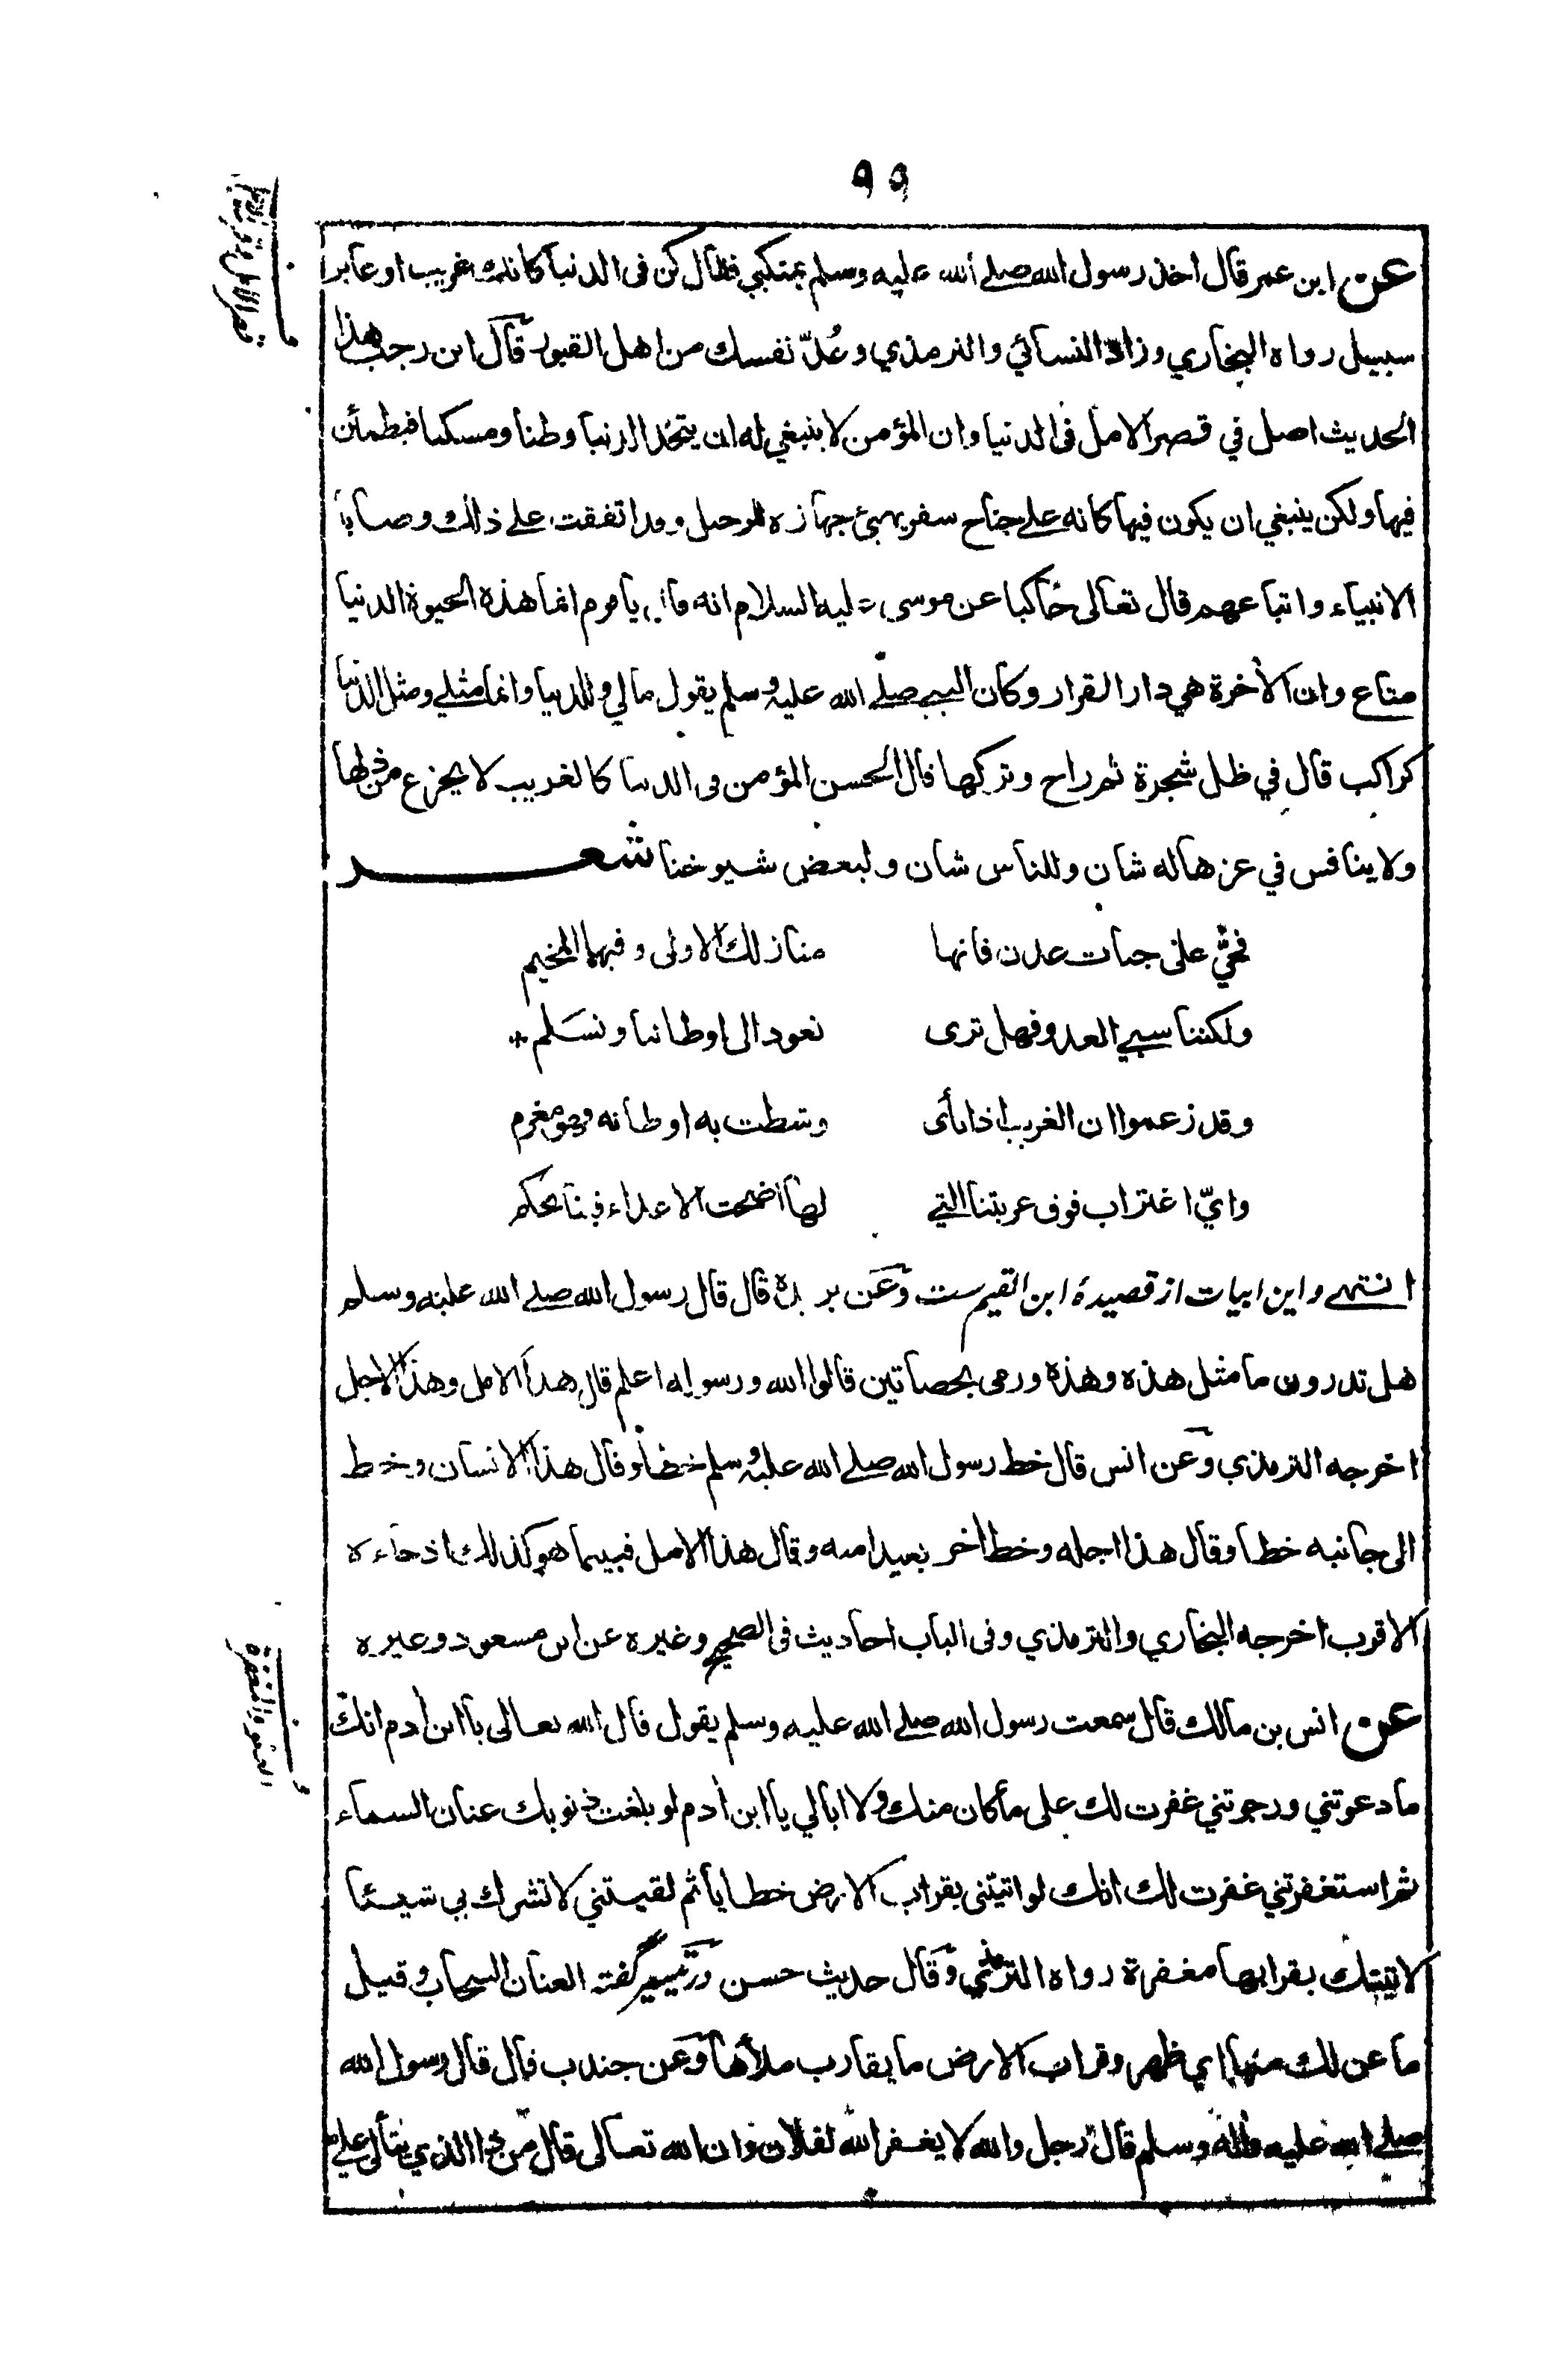 ٩٩
عن ابن عمر قال اخذ رسول الله صلے الله عليه وسلم بمنكبي فقال كن فى الدنيا كانك غريب او عابر
سبيل رواه البخاري وزاد النسائي والترمذي وعُدّ نفسك من اهل القبور قال ابن رجب هذا
الحديث اصل في قصر الامل فى الدنيا وان المؤمن لا ينبغي له ان يتخذ الدنيا وطنا ومسكنا فيطمئن
فيها ولكن ينبغي ان يكون فيها كانه علے جناح سفر يهيئ جهازه للرحيل وقد اتفقت علے ذلك وصايا
الانبياء واتباعهم قال تعالى حاكيا عن موسى عليه السلام انه قال ياقوم انما هذه الحيوة الدنيا
متاع وان الأخرة هي دار القرار وكان النبي صلے الله عليه وسلم يقول مالي وللدنيا وانما مثلے ومثل الدنيا
كراكب قال في ظل شجرة ثم راح وتركها قال الحسن المؤمن فى الدنيا كالغريب لا يجزع من ذلها
ولا ينافس في عزها له شان وللناس شان ولبعض شيوخنا شعر
فحيّ على جنات عدن فانها منازلك الاولى وفيها المخيم
ولكننا سبي العدو فهل ترى نعود الى اوطاننا ونسلم
وقد زعموا ان الغريب اذا نأى وشطت به اوطانه وهو مغرم
وايّ اغتراب فوق غربتنا التي لها اضحت الاعداء فينا تحكم
انتهے واين ابيات از قصيدۀ ابن القيم ست وعن بريدة قال قال رسول الله صلے الله عليه وسلم
هل تدرون ما مثل هذه وهذه ورمى بحصاتين قالوا الله ورسوله اعلم قال هذا الامل وهذا الاجل
اخرجه الترمذي وعن انس قال خط رسول الله صلے الله عليه وسلم خطا وقال هذا الانسان وخط
الى جانبه خطا وقال هذا اجله وخط أخر بعيدا منه وقال هذا الامل فبينما هو كذلك اذ جاءه
الاقرب اخرجه البخاري والترمذي وفى الباب احاديث فى الصحيح وغيره عن ابن مسعود وغيره
عن انس بن مالك قال سمعت رسول الله صلے الله عليه وسلم يقول قال الله تعالى يا ابن أدم انك
ما دعوتني ورجوتني غفرت لك على ما كان منك ولا ابالي يا ابن أدم لو بلغت ذنوبك عنان السماء
ثم استغفرتني غفرت لك انك لو اتيتني بقراب الارض خطايا ثم لقيتني لا تشرك بي شيئا
لاتيتك بقرابها مغفرة رواه الترمذي وقال حديث حسن ودر تيسير گفته العنان السحاب وقيل
ما عن لك منها اي ظهر وقراب الارض ما يقارب ملأها وعن جندب قال قال رسول الله
صلے الله عليه وأله وسلم قال رجل والله لا يغفر الله لفلان وان الله تعالى قال من ذا الذي يتألى علے
العفو والمغفرة